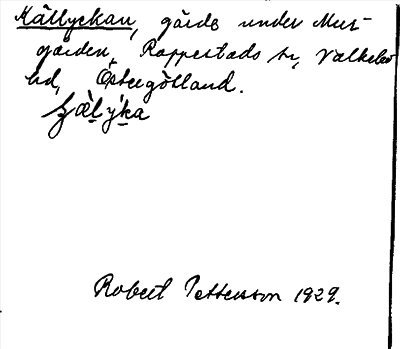 Källyckan, gärde under Mur-
gården, Rappestads sn, Valkebo
hd, Östergötland.
Robert Petterson 1929.